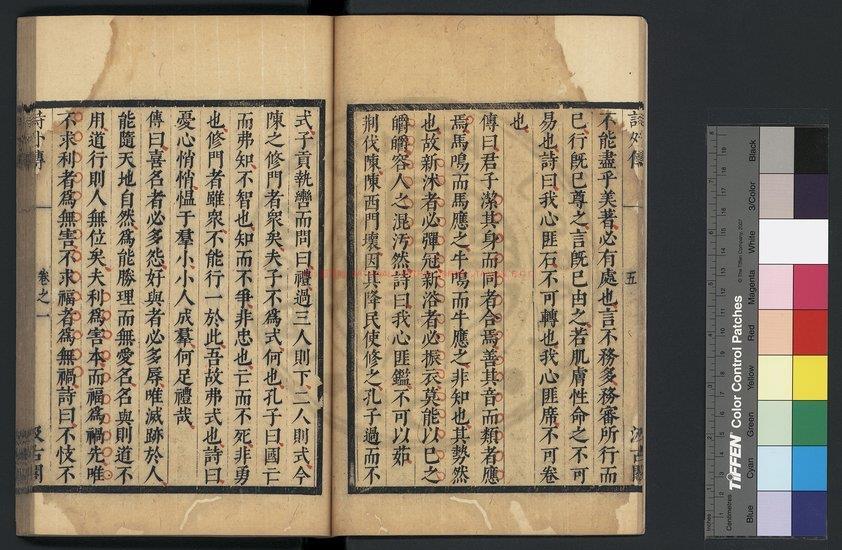 詩外傳
五
汲古閣
不能盡乎美著必有處也言不務多務審所行而
已行既已尊之言既已由之若肌膚性命之不可
易也詩曰我心匪石不可轉也我心匪席不可卷
也
傳曰君子潔其身而同者合焉善其音而類者應
焉馬鳴而馬應之牛鳴而牛應之非知也其勢然
也故新沐者必彈冠新浴者必振衣莫能以己之
皭皭容人之混污然詩曰我心匪鑑不可以茹
荆伐陳陳西門壞因其降民使修之孔子過而不
式子貢執轡而問曰禮過三人則下二人則式今
陳之修門者衆矣夫子不爲式何也孔子曰國亡
而弗知不智也知而不爭非忠也亡而不死非勇
也修門者雖衆不能行一於此吾故弗式也詩曰
憂心悄悄慍于羣小小人成羣何足禮哉
傳曰喜名者必多怨好與者必多辱唯滅跡於人
能隨天地自然爲能勝理而無愛名名興則道不
用道行則人無位矣夫利爲害本而福爲禍先唯
不求利者爲無害不求福者爲無禍詩曰不忮不
詩外傳
卷之一
汲古閣
Inches
Centimetres
TIFFEN Color Control Patches
© The Tiffen Company, 2007
Blue
Cyan
Green
Yellow
Red
Magenta
White
3/Color
Black